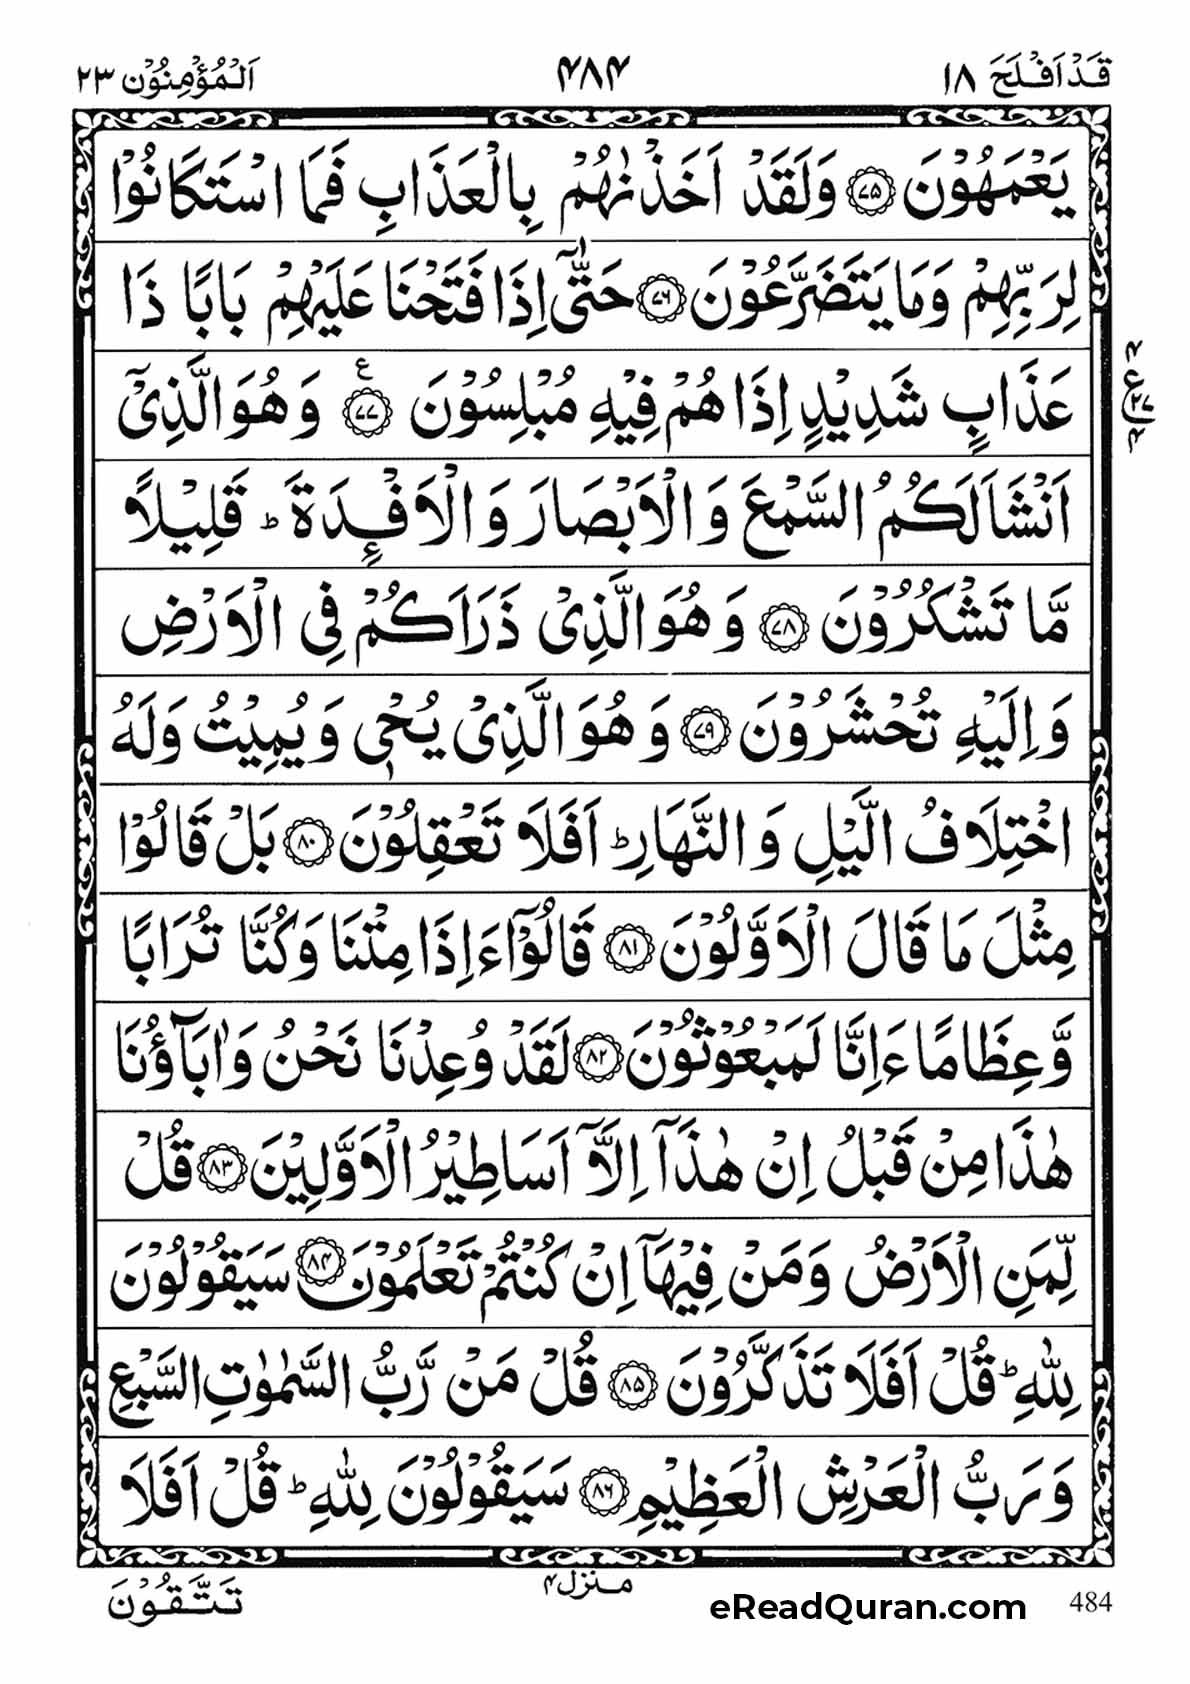 قَدْ اَفْلَحَ ۱۸
۴۸۴
اَلْمُؤْمِنُوْن ۲۳
يَعْمَهُوْنَ ۷۵ وَلَقَدْ اَخَذْنٰهُمْ بِالْعَذَابِ فَمَا اسْتَكَانُوْا
لِرَبِّهِمْ وَمَا يَتَضَرَّعُوْنَ ۷۶ حَتّٰۤى اِذَا فَتَحْنَا عَلَيْهِمْ بَابًا ذَا
عَذَابٍ شَدِيْدٍ اِذَا هُمْ فِيْهِ مُبْلِسُوْنَ ۷۷ ع وَهُوَ الَّذِيْۤ
اَنْشَاَ لَكُمُ السَّمْعَ وَالْاَبْصَارَ وَالْاَفْـِٕدَةَ ؕ قَلِيْلًا
مَّا تَشْكُرُوْنَ ۷۸ وَهُوَ الَّذِيْ ذَرَاَكُمْ فِي الْاَرْضِ
وَاِلَيْهِ تُحْشَرُوْنَ ۷۹ وَهُوَ الَّذِيْ يُحْيٖ وَيُمِيْتُ وَلَهُ
اخْتِلَافُ الَّيْلِ وَالنَّهَارِ ؕ اَفَلَا تَعْقِلُوْنَ ۸۰ بَلْ قَالُوْا
مِثْلَ مَا قَالَ الْاَوَّلُوْنَ ۸۱ قَالُوْۤا ءَاِذَا مِتْنَا وَكُنَّا تُرَابًا
وَّعِظَامًا ءَاِنَّا لَمَبْعُوْثُوْنَ ۸۲ لَقَدْ وُعِدْنَا نَحْنُ وَاٰبَآؤُنَا
هٰذَا مِنْ قَبْلُ اِنْ هٰذَاۤ اِلَّاۤ اَسَاطِيْرُ الْاَوَّلِيْنَ ۸۳ قُلْ
لِّمَنِ الْاَرْضُ وَمَنْ فِيْهَاۤ اِنْ كُنْتُمْ تَعْلَمُوْنَ ۸۴ سَيَقُوْلُوْنَ
لِلّٰهِ ؕ قُلْ اَفَلَا تَذَكَّرُوْنَ ۸۵ قُلْ مَنْ رَّبُّ السَّمٰوٰتِ السَّبْعِ
وَرَبُّ الْعَرْشِ الْعَظِيْمِ ۸۶ سَيَقُوْلُوْنَ لِلّٰهِ ؕ قُلْ اَفَلَا
تَتَّقُوْنَ
منزل ۴
eReadQuran.com
484